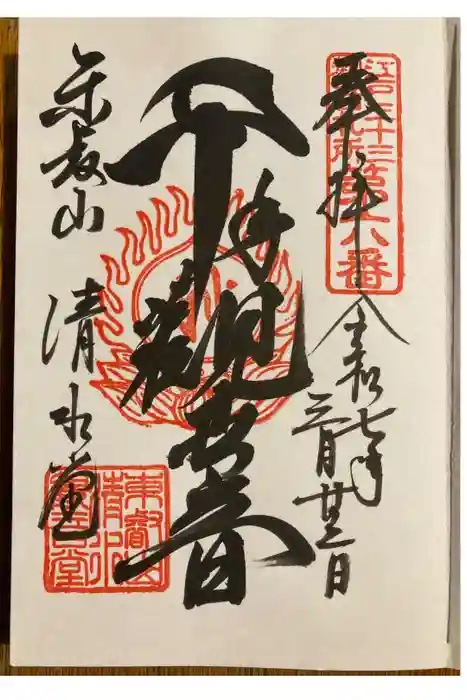 奉拝
令和七年
三月廿三日
江戸三十三
札所第六番
千手観音
東叡山
清水堂
東叡山
清水
観音堂